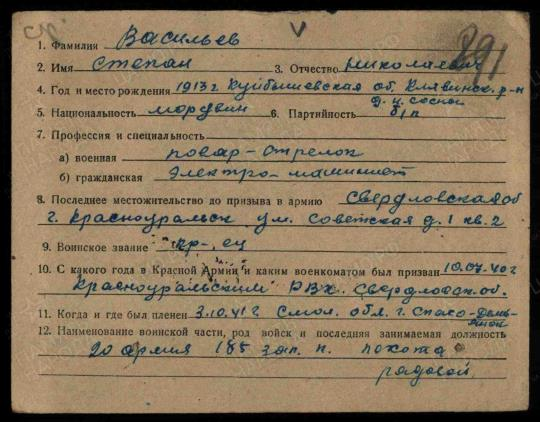 V
891
1. Фамилия Васильев
2. Имя Степан 3. Отчество Николаевич
4. Год и место рождения 1913 г Куйбышевская об. Клявинск. р-н
5. Национальность мордвин 6. Партийность б/п
7. Профессия и специальность
а) военная повар-стрелок
б) гражданская электро-машинист
8. Последнее местожительство до призыва в армию Свердловская об
г. Красноуральск ул. Советская д. 1 кв. 2
9. Воинское звание кр-ец
10. С какого года в Красной Армии и каким военкоматом был призван 10.07.40 г
Красноуральским РВК. Свердловск. об.
11. Когда и где был пленен 3.10.41 г Смол. обл. г. Спасо-Демьянск
12. Наименование воинской части, род войск и последняя занимаемая должность
20 армия 185 зап. п. пехота
рядовой